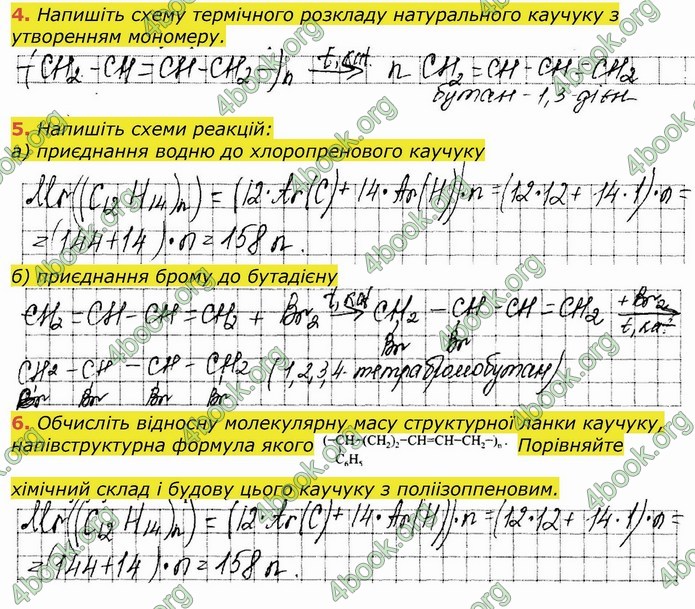 4. Напишіть схему термічного розкладу натурального каучуку з
утворенням мономеру.
(-CH₂-CH=CH-CH₂-)n t,кат. → n CH₂=CH-CH=CH₂
бутан-1,3 дієн
5. Напишіть схеми реакцій:
а) приєднання водню до хлоропренового каучуку
Mr((C₁₂H₁₄)n) = (12·Ar(C)+14·Ar(H))·n=(12·12+14·1)·n=
=(144+14)·n=158n.
б) приєднання брому до бутадієну
CH₂=CH-CH=CH₂ + Br₂ t,кат → CH₂-CH-CH=CH₂ +Br₂ t,кат. →
Br Br
CH₂-CH-CH-CH₂ (1,2,3,4-тетрабромобутан)
Br Br Br Br
6. Обчисліть відносну молекулярну масу структурної ланки каучуку,
напівструктурна формула якого (-CH-(CH₂)₂-CH=CH-CH₂-)n. Порівняйте
C₆H₅
хімічний склад і будову цього каучуку з поліізоппеновим.
Mr((C₁₂H₁₄)n) = (12·Ar(C)+14·Ar(H))·n=(12·12+14·1)·n=
=(144+14)·n=158n.
4book.org